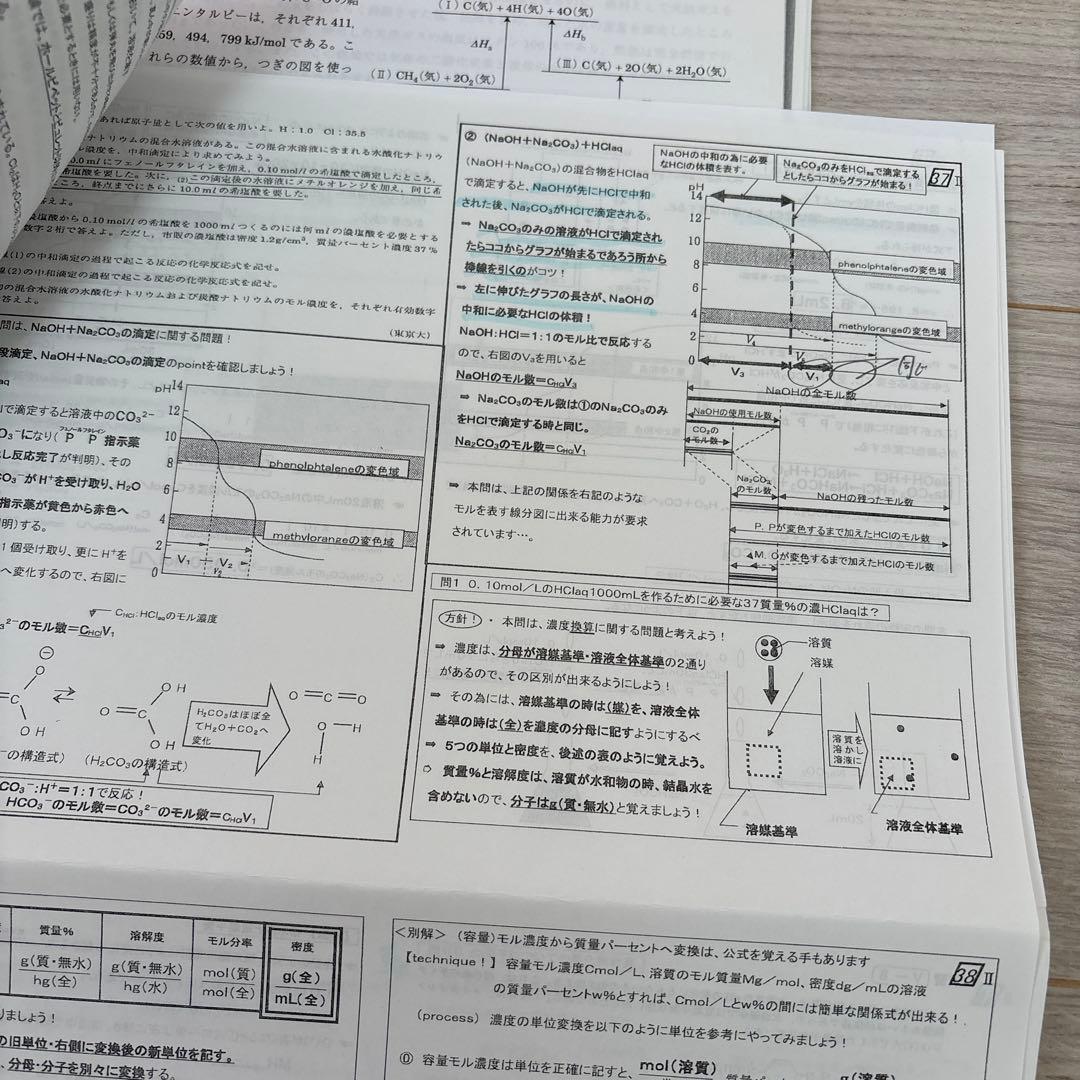 (Ⅰ) C(気)+4H(気)+4O(気)
ンタルピーは，それぞれ 411,
59, 494, 799 kJ/mol である。こ
れらの数値から，つぎの図を使っ
ΔHa
ΔHb
(Ⅲ) C(気)+2O(気)+2H₂O(気)
(Ⅱ) CH₄(気)+2O₂(気)
あれば原子量として次の値を用いよ。H：1.0 Cl：35.5
ナトリウムの混合水溶液がある。この混合水溶液に含まれる水酸化ナトリウ
濃度を，中和滴定により求めてみよう。
0.0mlにフェノールフタレインを加え，0.10mol/lの希塩酸で滴定したところ，
希塩酸を要した。次に，(2)この滴定後の水溶液にメチルオレンジを加え，同じ希
ころ，終点までにさらに10.0mlの希塩酸を要した。
答えよ。
濃塩酸から0.10mol/lの希塩酸を1000mlつくるのには何mlの濃塩酸を必要とする
数字2桁で答えよ。ただし，市販の濃塩酸は密度1.2g/cm³，質量パーセント濃度37%
(1)の中和滴定の過程で起こる反応の化学反応式を記せ。
(2)の中和滴定の過程で起こる反応の化学反応式を記せ。
の混合水溶液の水酸化ナトリウムおよび炭酸ナトリウムのモル濃度を，それぞれ有効数字
答えよ。
(東京大)
問は、NaOH+Na₂CO₃の滴定に関する問題！
段滴定、NaOH+Na₂CO₃の滴定のpointを確認しましょう！
aq
lで滴定すると溶液中のCO₃²⁻
O₃⁻になり(P P 指示薬
フェノールフタレイン
し反応完了が判明)、その
CO₃⁻がH⁺を受け取り、H₂O
指示薬が黄色から赤色へ
明)する。
1個受け取り、更にH⁺を
へ変化するので、右図に
pH
14
12
10
8
6
4
2
0
phenolphtaleneの変色域
methylorangeの変色域
V₁
V₂
V₂
CHCl：HClaqのモル濃度
₃²⁻のモル数=CHClV₁
⊖
O
C
OH
⇄
OH
O=C
OH
H₂CO₃はほぼ全
てH₂O+CO₂へ
変化
O=C=O
O—H
H
⁻の構造式) (H₂CO₃の構造式)
CO₃⁻：H⁺=1：1で反応！
HCO₃⁻のモル数=CO₃²⁻のモル数=CHClV₁
② (NaOH+Na₂CO₃)+HClaq
(NaOH+Na₂CO₃)の混合物をHClaq
で滴定すると、NaOHが先にHClで中和
された後、Na₂CO₃がHClで滴定される。
⇒ Na₂CO₃のみの溶液がHClで滴定され
たらココからグラフが始まるであろう所から
線を引くのがコツ！
⇒ 左に伸びたグラフの長さが、NaOHの
中和に必要なHClの体積！
NaOH：HCl=1：1のモル比で反応する
ので、右図のV₃を用いると
NaOHのモル数=CHClV₃
⇒ Na₂CO₃のモル数は①のNa₂CO₃のみ
をHClで滴定する時と同じ。
Na₂CO₃のモル数=CHClV₁
⇒ 本問は、上記の関係を右記のような
モルを表す線分図に出来る能力が要求
されています…。
NaOHの中和の為に必要
なHClの体積を表す。
Na₂CO₃のみをHClaqで滴定する
としたらココからグラフが始まる！
37 Ⅱ
pH
14
12
10
8
6
4
2
0
phenolphtaleneの変色域
methylorangeの変色域
V₁
V₂
V₃
V₁
同じ
NaOHの全モル数
NaOHの使用モル数
CO₂の
モル数
Na₂CO₃
のモル数
NaOHの残ったモル数
P. Pが変色するまで加えたHClのモル数
M. Oが変色するまで加えたHClのモル数
問1 0. 10mol/LのHClaq1000mLを作るために必要な37質量%の濃HClaqは？
方針！・本問は、濃度換算に関する問題と考えよう！
⇒ 濃度は、分母が溶媒基準・溶液全体基準の2通り
があるので、その区別が出来るようにしよう！
⇒ その為には、溶媒基準の時は(媒)を、溶液全体
基準の時は(全)を濃度の分母に記すようにするべ
⇒ 5つの単位と密度を、後述の表のように覚えよう。
質量%と溶解度は、溶質が水和物の時、結晶水を
含めないので、分子はg(質・無水)と覚えましょう！
溶質
溶媒
溶質を
溶かし
溶液に
溶媒基準
溶液全体基準
質量%
溶解度
モル分率
密度
g(質・無水)
hg(全)
g(質・無水)
hg(水)
mol(質)
mol(全)
g(全)
mL(全)
りましょう！
の旧単位・右側に変換後の新単位を記す。
、分母・分子を別々に変換する。
＜別解＞ (容量)モル濃度から質量パーセントへ変換は、公式を覚える手もあります
38 Ⅱ
【technique！】容量モル濃度Cmol/L、溶質のモル質量Mg/mol、密度dg/mLの溶液
の質量パーセントw%とすれば、Cmol/Lとw%の間には簡単な関係式が出来る！
(process) 濃度の単位変換を以下のように単位を参考にやってみましょう！
① 容量モル濃度は単位を正確に記すと、mol(溶質)
g(溶質)